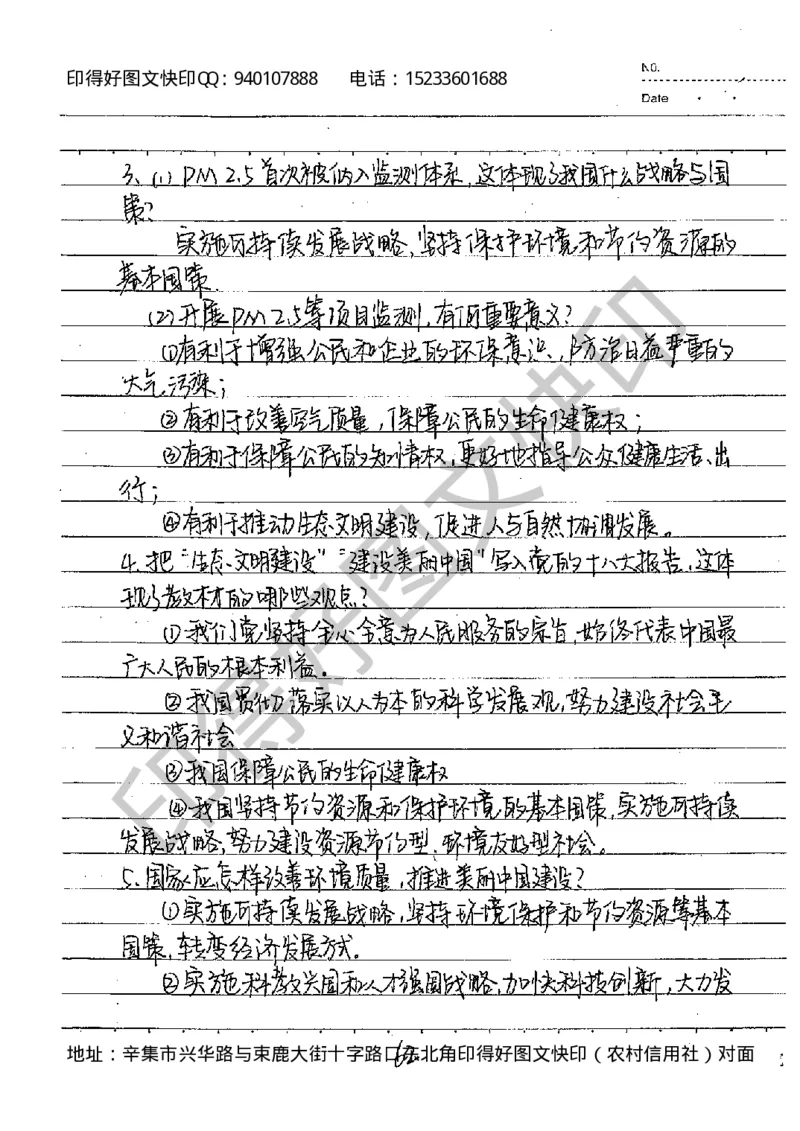 印得好图文快印QQ：940107888 电话：15233601688
No.
Date
3、(1) PM 2.5首次被纳入监测体系，这体现了我国什么战略与国
策？
实施可持续发展战略，坚持保护环境和节约资源的
基本国策.
(2)开展PM 2.5等项目监测，有何重要意义？
①有利于增强公民和企业的环保意识，防治日益严重的
大气污染；
②有利于改善空气质量，保障公民的生命健康权；
③有利于保障公民的知情权，更好地指导公众健康生活、出
行；
④有利于推动生态文明建设，促进人与自然协调发展。
4.把“生态文明建设”“建设美丽中国”写入党的十八大报告，这体
现了教材的哪些观点？
①我们党坚持全心全意为人民服务的宗旨，始终代表中国最
广大人民的根本利益。
②我国贯彻落实以人为本的科学发展观，努力建设社会主
义和谐社会
③我国保障公民的生命健康权
④我国坚持节约资源和保护环境的基本国策，实施可持续
发展战略，努力建设资源节约型、环境友好型社会。
5.国家应怎样改善环境质量，推进美丽中国建设？
①实施可持续发展战略，坚持环境保护和节约资源等基本
国策，转变经济发展方式。
②实施科教兴国和人才强国战略，加快科技创新，大力发
地址：辛集市兴华路与束鹿大街十字路口东北角印得好图文快印（农村信用社）对面
62
印得好图文快印